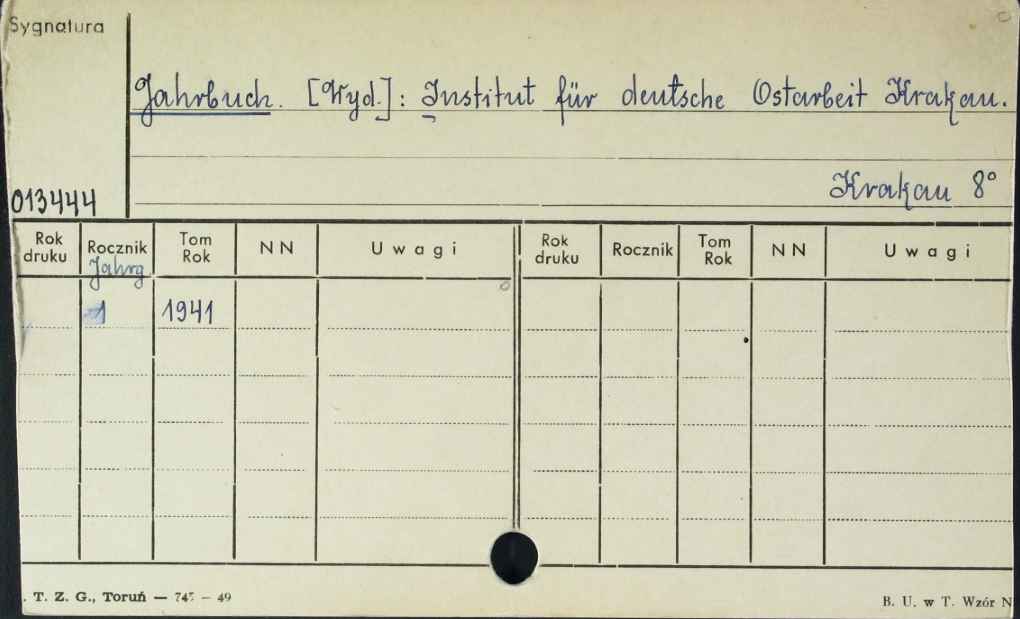 Sygnatura
Jahrbuch. [Wyd.]: Institut für deutsche Ostarbeit Krakau.
Krakau 8°
013444
Rok druku Rocznik Tom Rok NN Uwagi Rok druku Rocznik Tom Rok NN Uwagi
Jahrg
1 1941
. T. Z. G., Toruń — 745 — 49
B. U. w T. Wzór N